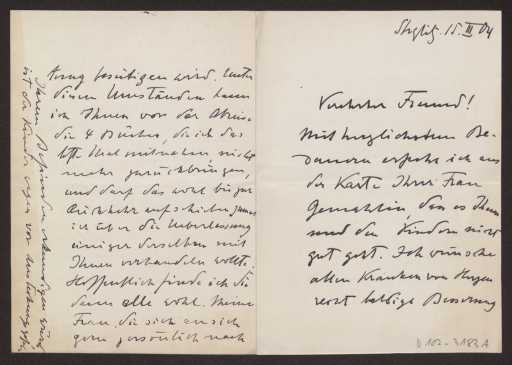 Steglitz 15. III 04
Verehrter Freund!
Mit herzlichstem Be-
dauern erfahre ich aus
der Karte Ihrer Frau
Gemahlin, dass es Ihnen
und den Kindern nicht
gut geht. Ich wünsche
allen Kranken von Herzen
recht baldige Besserung
D 102-3183 A
beseitigen wird. Unter
diesen Umständen kann
ich Ihnen vor der Abreise
die 4 Bücher, die ich das
letzte Mal mitnahm, nicht
mehr zurückbringen,
und darf das wohl bis zur
Rückkehr aufschieben,
ich über die Ueberlassung
einiger derselben mit
Ihnen verhandeln wollte.
Hoffentlich finde ich Sie
dann alle wohl. Meine
Frau, die sich an sich
gern persönlich nach
Ihrem Befinden erkundigen würde
ist der Kinder wegen vor